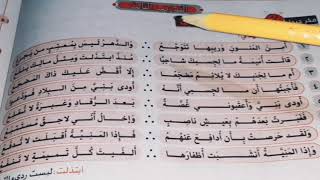 أَمِنَ الْمَنُونِ وَرَيْبِهَا تَتَوَجَّعُ ∴ وَالدَّهْرُ لَيْسَ بِمُعْتِبٍ
قَالَتْ أُمَيْمَةُ مَا لِجِسْمِكَ شَاحِبًا ∴ مُنْذُ ابْتَذَلْتَ وَمِثْلُ مَالِكَ
أَمْ مَا لِجَنْبِكَ لَا يُلَائِمُ مَضْجَعًا ∴ إِلَّا أَقَضَّ عَلَيْكَ ذَاكَ
فَأَجَبْتُهَا أَنْ مَا لِجِسْمِيَ أَنَّهُ ∴ أَوْدَى بَنِيَّ مِنَ الْبِلَادِ
أَوْدَى بَنِيَّ وَأَعْقَبُونِي غُصَّةً ∴ بَعْدَ الرُّقَادِ وَعَبْرَةً لَا
فَغَبَرْتُ بَعْدَهُمُ بِعَيْشٍ نَاصِبٍ ∴ وَإِخَالُ أَنِّي لَاحِقٌ
وَلَقَدْ حَرِصْتُ بِأَنْ أُدَافِعَ عَنْهُمُ ∴ فَإِذَا الْمَنِيَّةُ أَقْبَلَتْ لَا
وَإِذَا الْمَنِيَّةُ أَنْشَبَتْ أَظْفَارَهَا ∴ أَلْفَيْتَ كُلَّ تَمِيمَةٍ لَا
ابتذلت: لبست